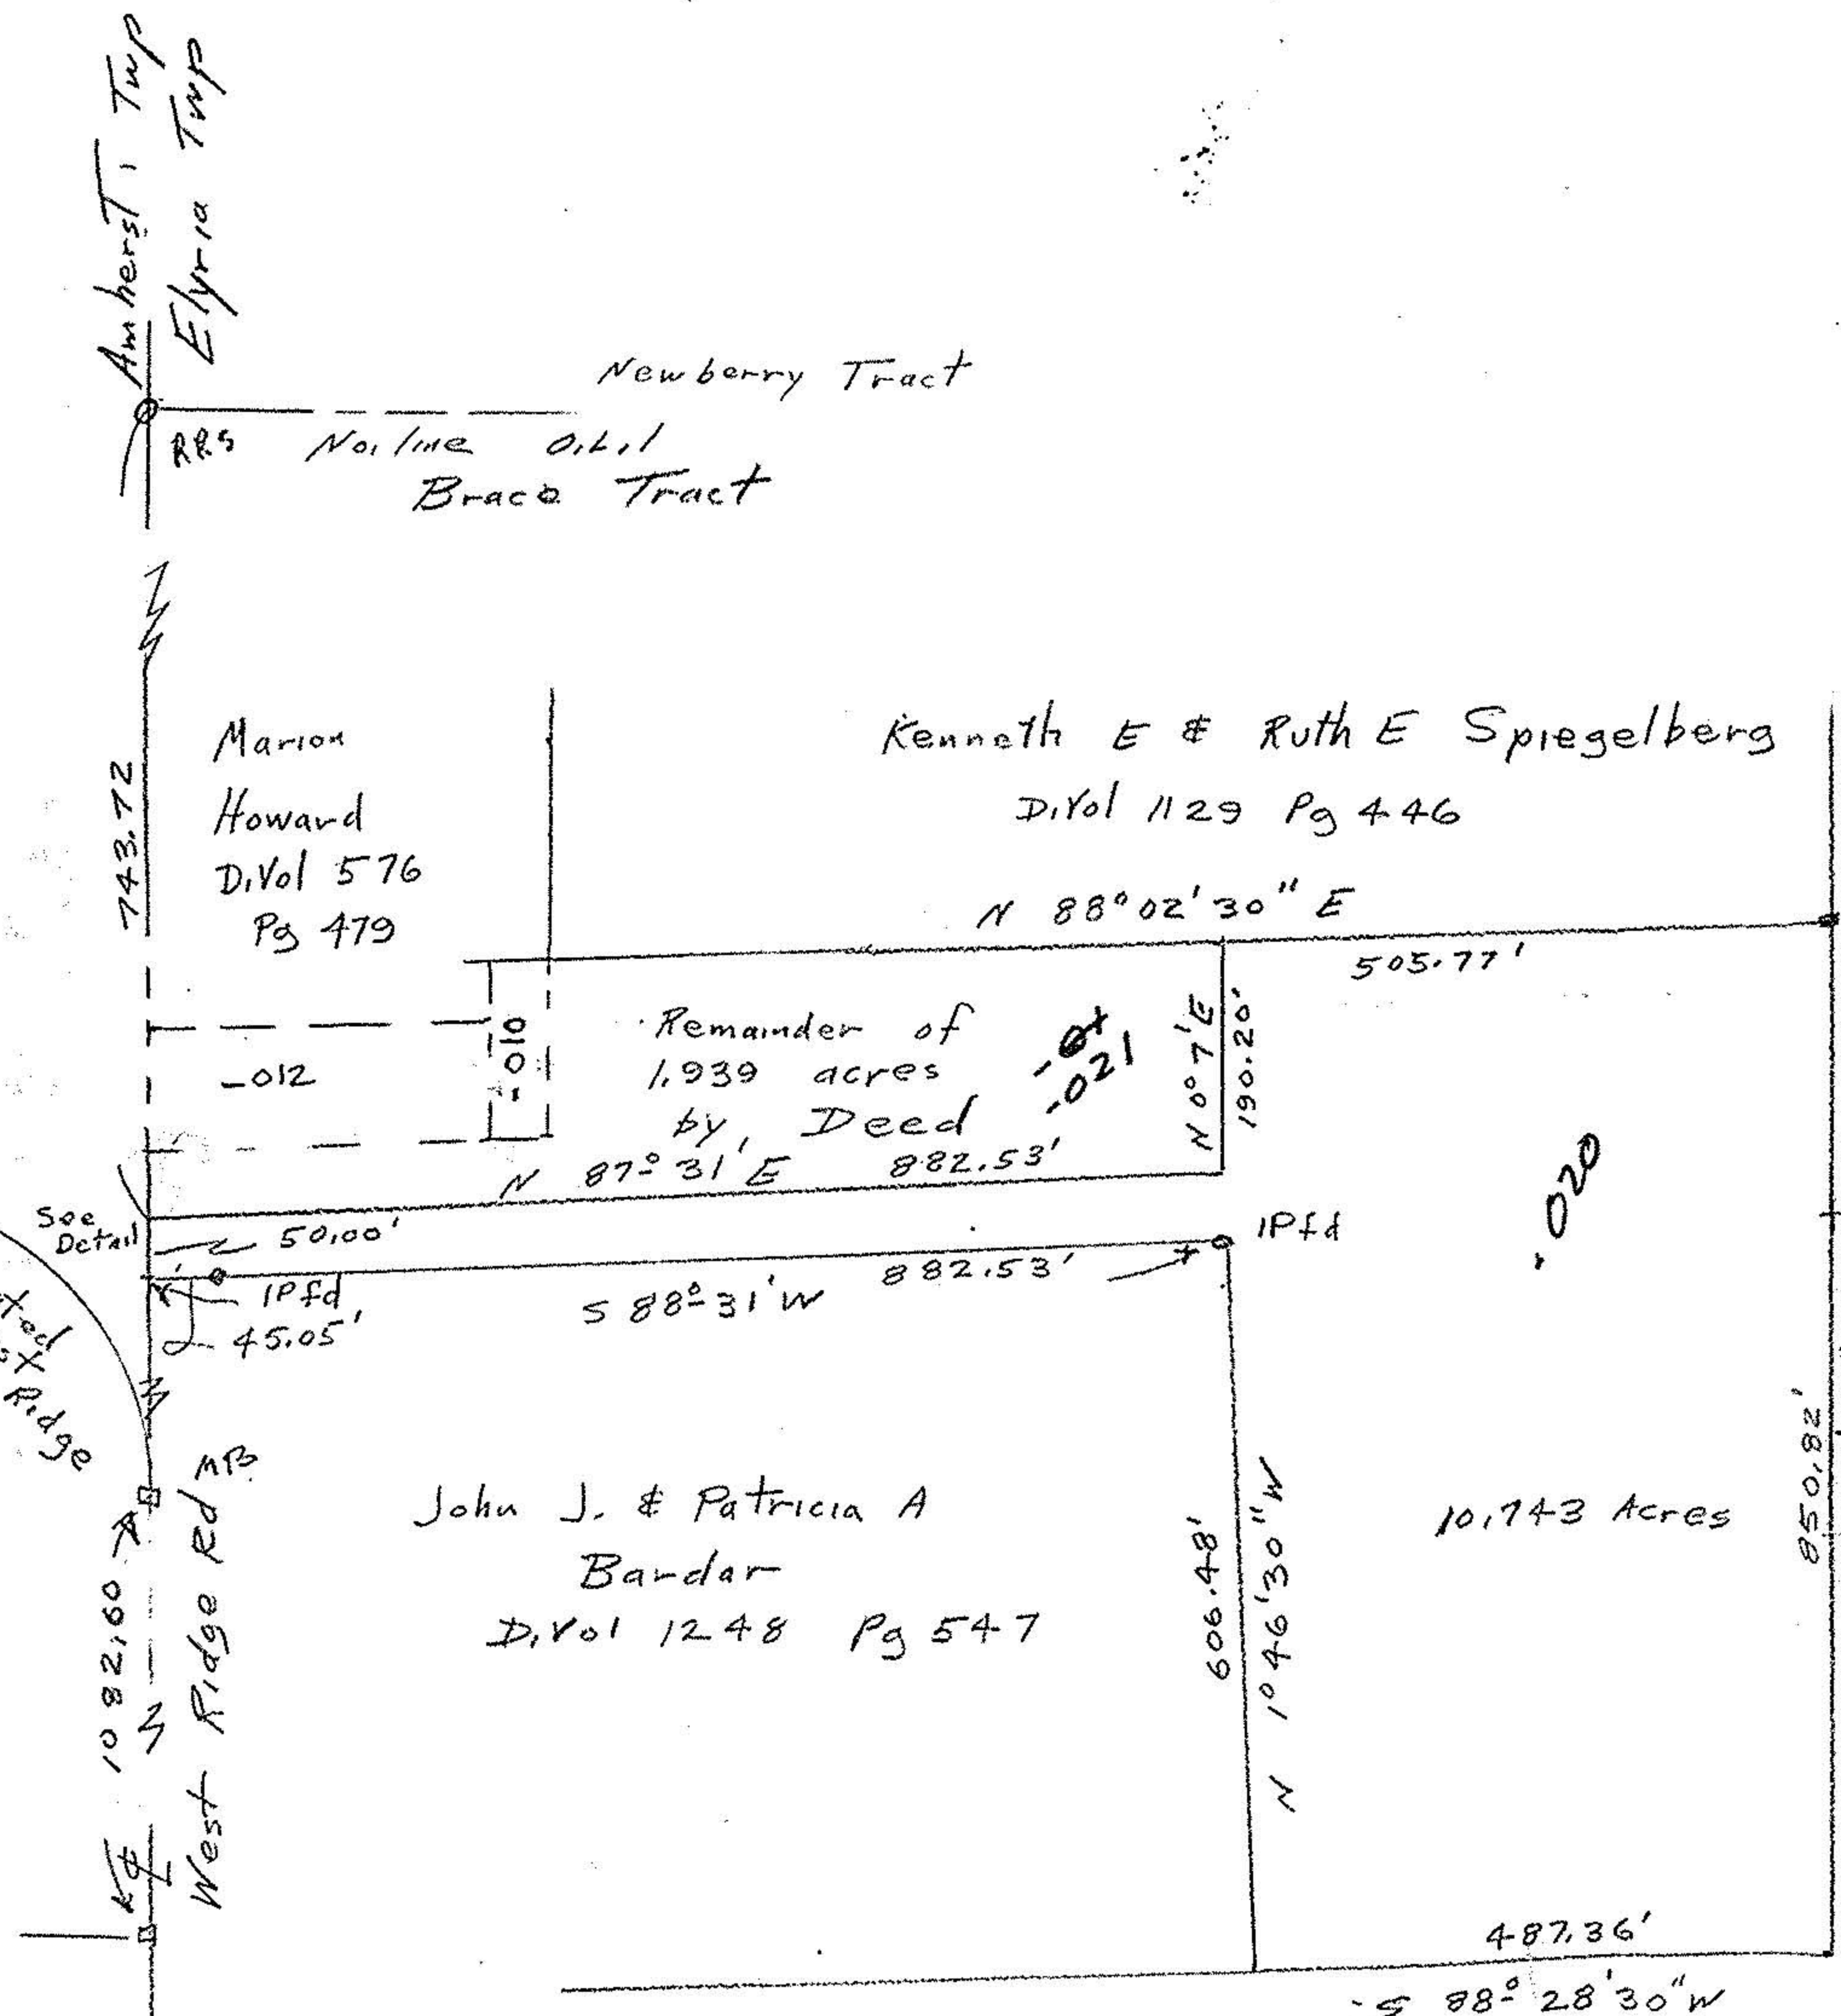 Amherst Twp
Elyria Twp
Newberry Tract
RRS No. line O.L. 1
Brace Tract
743.72
Marion
Howard
D.Vol 576
Pg 479
Kenneth E & Ruth E Spiegelberg
D.Vol 1129 Pg 446
N 88° 02' 30" E
505.77'
-012
-010
Remainder of
1.939 acres
by Deed
-021
N 0° 7' E
190.20'
-020
N 87° 31' E 882.53'
See
Detail
50.00'
IPfd
IPfd
882.53'
S 88° 31' W
45.05'
"X"
Ridge
MB
West Ridge Rd
1082.60
John J. & Patricia A
Bardar
D.Vol 1248 Pg 547
606.48'
N 1° 46' 30" W
10.743 Acres
850.82'
487.36'
S 88° 28' 30" W